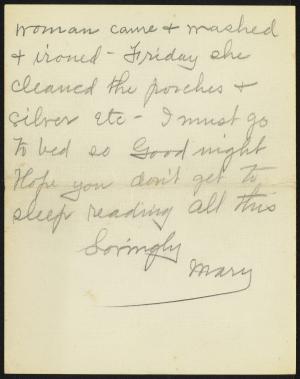 woman came & washed
& ironed - Friday she
cleaned the porches &
silver etc - I must go
to bed so Good night
Hope you don't get to
sleep reading all this
Lovingly
Mary